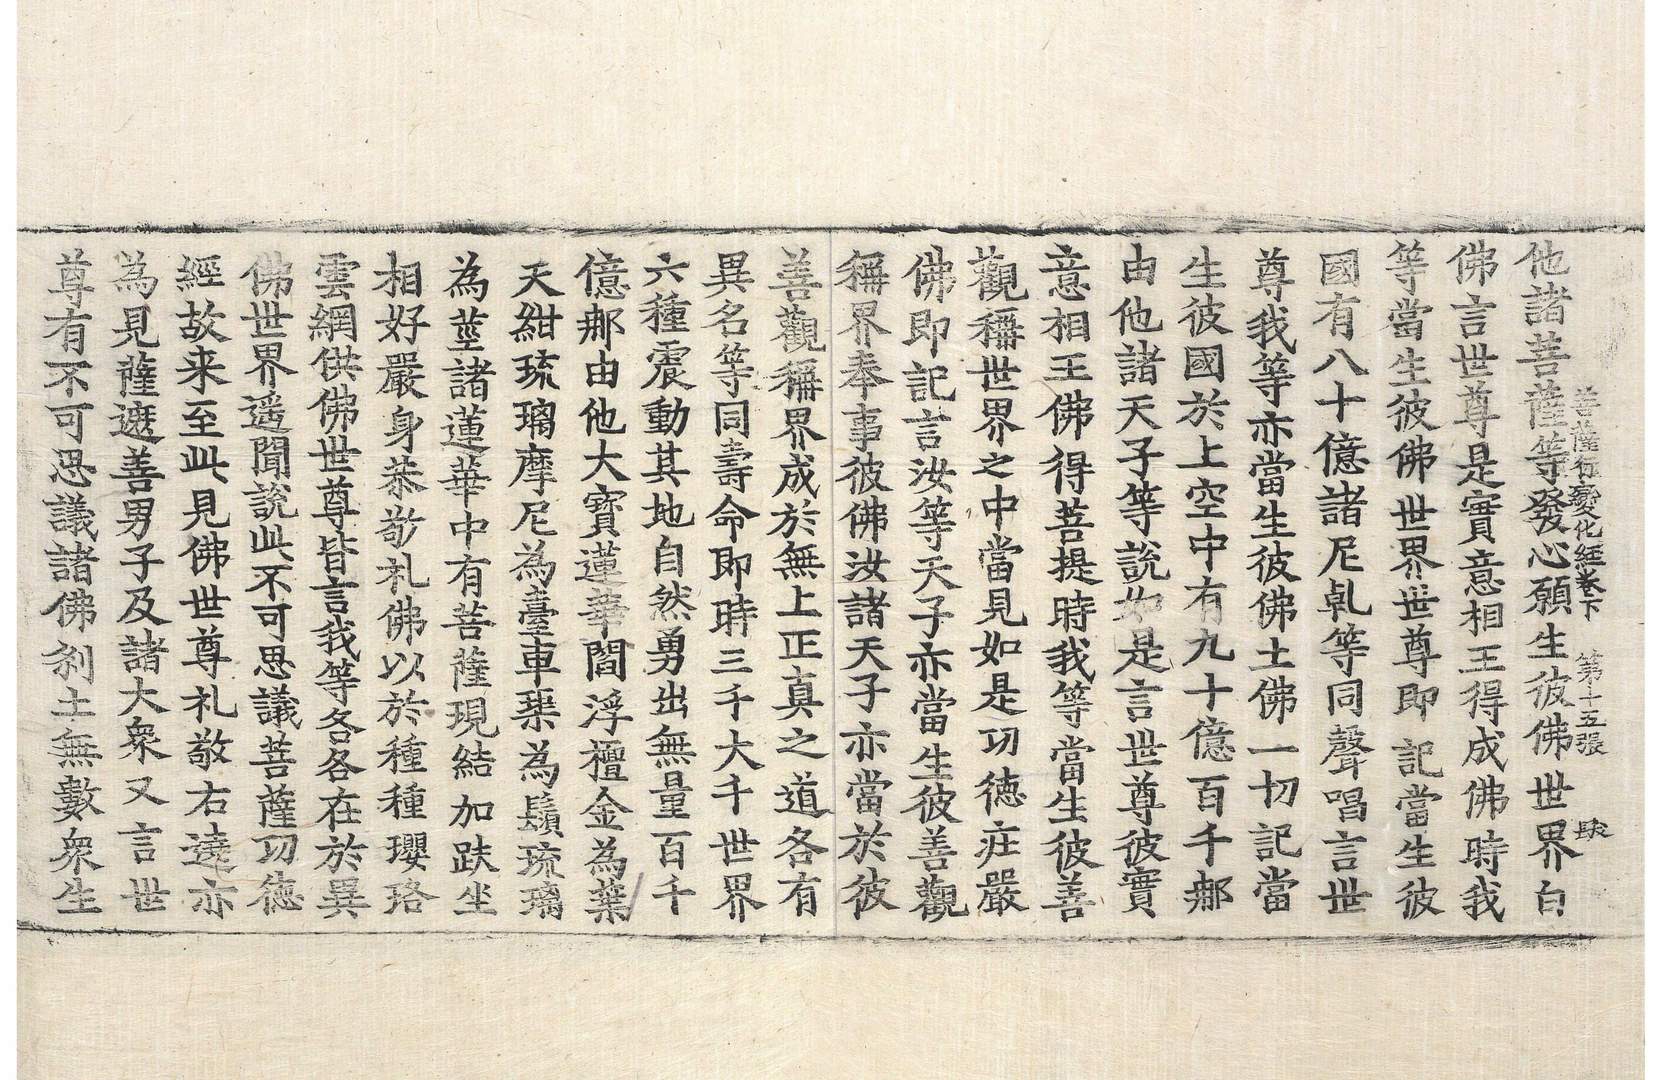 菩薩行變化經卷下 第十五張
他諸菩薩等發心願生彼佛世界白
佛言世尊是實意相王得成佛時我
等當生彼佛世界世尊即記當生彼
國有八十億諸尼乹等同聲唱言世
尊我等亦當生彼佛土佛一切記當
生彼國於上空中有九十億百千𨚗
由他諸天子等說如是言世尊彼實
意相王佛得菩提時我等當生彼善
觀稱世界之中當見如是功德庄嚴
佛即記言汝等天子亦當生彼善觀
稱界奉事彼佛汝諸天子亦當於彼
善觀稱界成於無上正真之道各有
異名等同壽命即時三千大千世界
六種震動其地自然勇出無量百千
億𨚗由他大寶蓮華閻浮檀金為葉
天紺琉璃摩尼為臺車𤦲為鬚琉璃
為莖諸蓮華中有菩薩現結加趺坐
相好嚴身恭敬礼佛以於種種瓔珞
雲網供佛世尊皆言我等各各在於異
佛世界遥聞說此不可思議菩薩功德
經故来至此見佛世尊礼敬右遶亦
為見薩遮善男子及諸大衆又言世
尊有不可思議諸佛刹土無數衆生